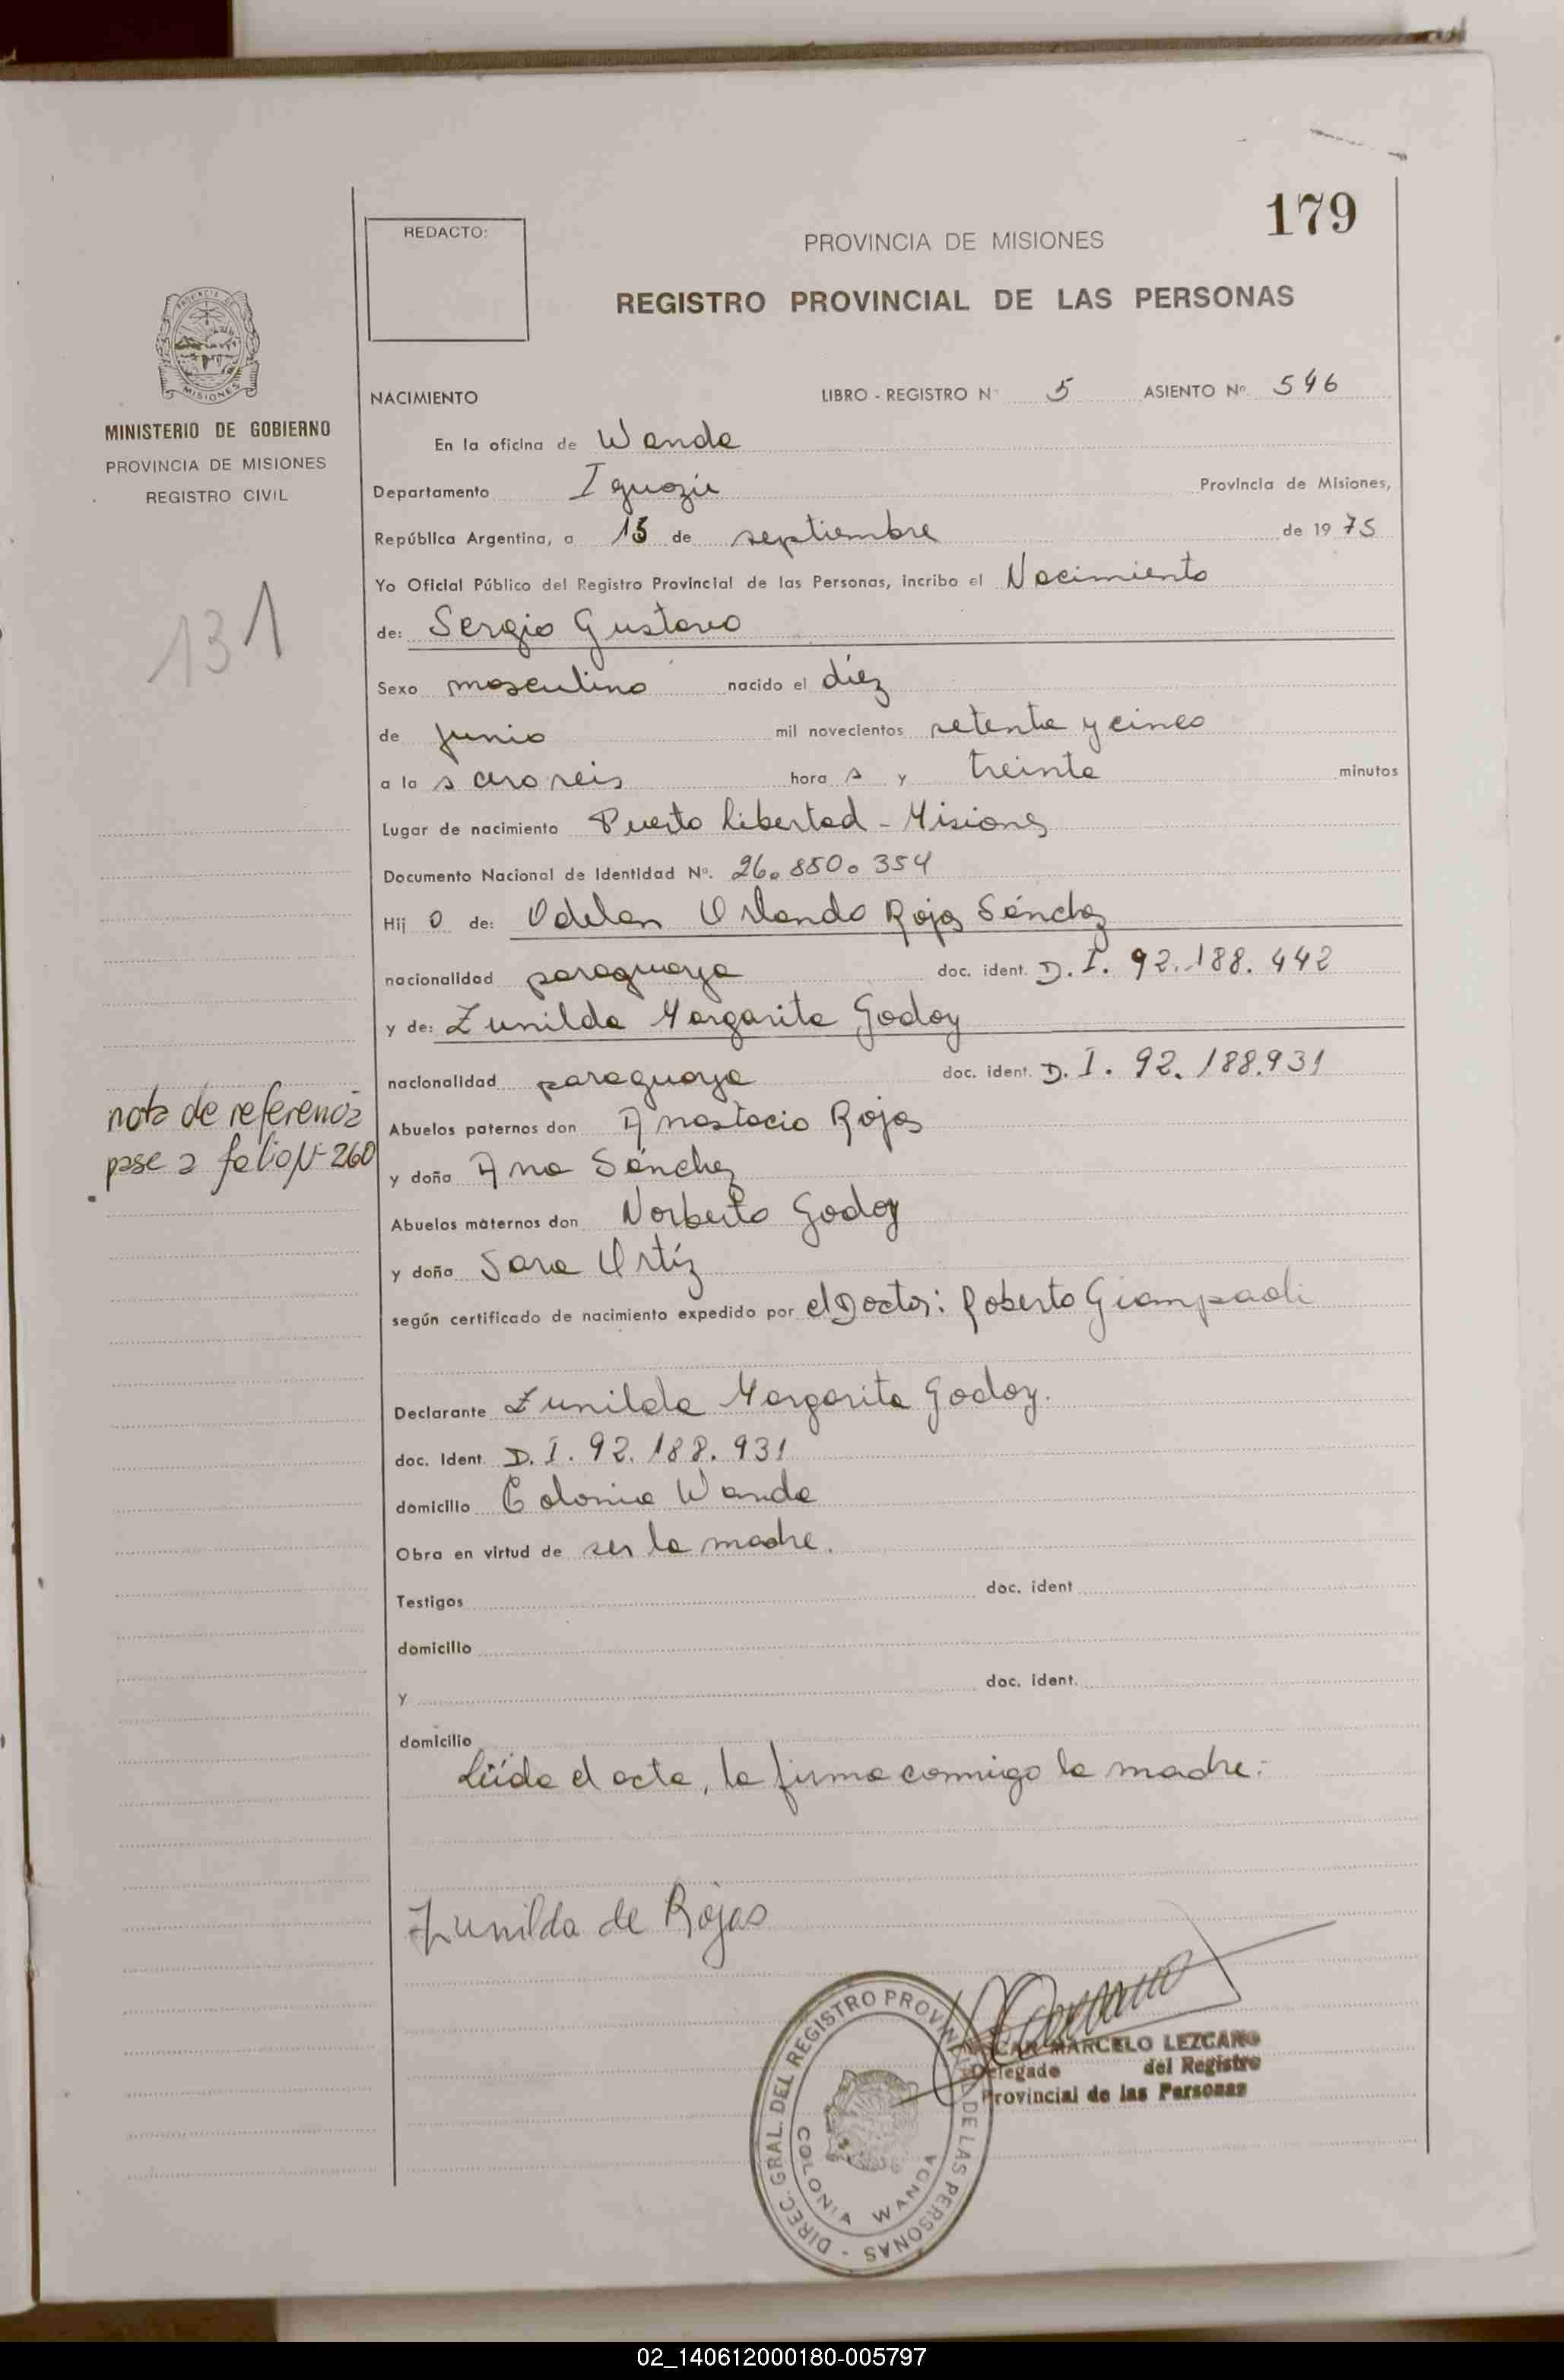 179
REDACTO:
PROVINCIA DE MISIONES
REGISTRO PROVINCIAL DE LAS PERSONAS
PROVINCIA DE
MISIONES
MINISTERIO DE GOBIERNO
PROVINCIA DE MISIONES
REGISTRO CIVIL
131
NACIMIENTO LIBRO - REGISTRO Nº 5 ASIENTO Nº 546
En la oficina de Wanda
Departamento Iguazú Provincia de Misiones,
República Argentina, a 15 de septiembre de 1975
Yo Oficial Público del Registro Provincial de las Personas, incribo el Nacimiento
de: Sergio Gustavo
Sexo masculino nacido el diez
de junio mil novecientos setenta y cinco
a la s cero seis hora s y treinta minutos
Lugar de nacimiento Puerto Libertad - Misiones
Documento Nacional de Identidad Nº. 26.850.354
Hij o de: Odelon Orlando Rojas Sánchez
nacionalidad paraguaya doc. ident. D.I. 92.188.442
y de: Zunilda Margarita Godoy
nacionalidad paraguaya doc. ident. D.I. 92.188.931
nota de referencia
pase a folio Nº 260
Abuelos paternos don Anastacio Rojas
y doña Ana Sánchez
Abuelos maternos don Norberto Godoy
y doña Sara Ortíz
según certificado de nacimiento expedido por el Doctor: Roberto Giampaoli
Declarante Zunilda Margarita Godoy.
doc. Ident. D.I. 92.188.931
domicilio Colonia Wanda
Obra en virtud de ser la madre.
Testigos doc. ident
domicilio
y doc. ident.
domicilio
Leída el acta, la firma conmigo la madre.-
Zunilda de Rojas
MARCELO LEZCANO
Delegado del Registro
Provincial de las Personas
DIREC. GRAL. DEL REGISTRO PROVINCIAL DE LAS PERSONAS -
COLONIA WANDA
02_140612000180-005797